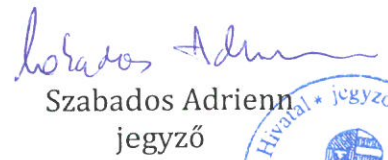 Szabados Adrienn
Szabados Adrienn
jegyző
Hivatal * jegyző